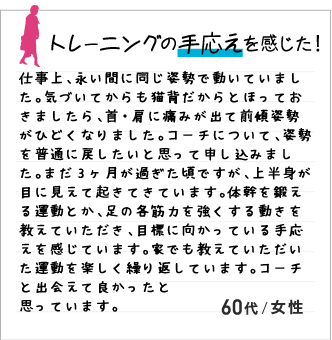 トレーニングの手応えを感じた！
仕事上、永い間に同じ姿勢で動いていまし
た。気づいてからも猫背だからとほってお
きましたら、首・肩に痛みが出て前傾姿勢
がひどくなりました。コーチについて、姿勢
を普通に戻したいと思って申し込みまし
た。まだ３ヶ月が過ぎた頃ですが、上半身が
目に見えて起きてきています。体幹を鍛え
る運動とか、足の各筋力を強くする動きを
教えていただき、目標に向かっている手応
えを感じています。家でも教えていただい
た運動を楽しく繰り返しています。コーチ
と出会えて良かったと
思っています。
60代/女性